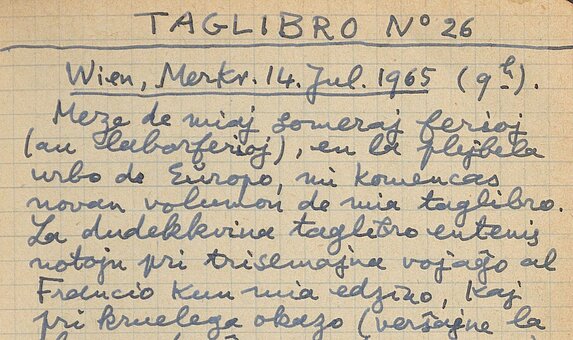 TAGLIBRO Nº 26
Wien, Merkr. 14. Jul. 1965 (9h).
Meze de miaj someraj ferioj
(aŭ laborferioj), en la plejbela
urbo de Eŭropo, mi komencas
novan volumon de mia taglibro.
La dudekkvina taglibro entenis
notojn pri trisemajna vojaĝo al
Francio kun mia edzino, kaj
pri kruelega okazo (verŝajne la